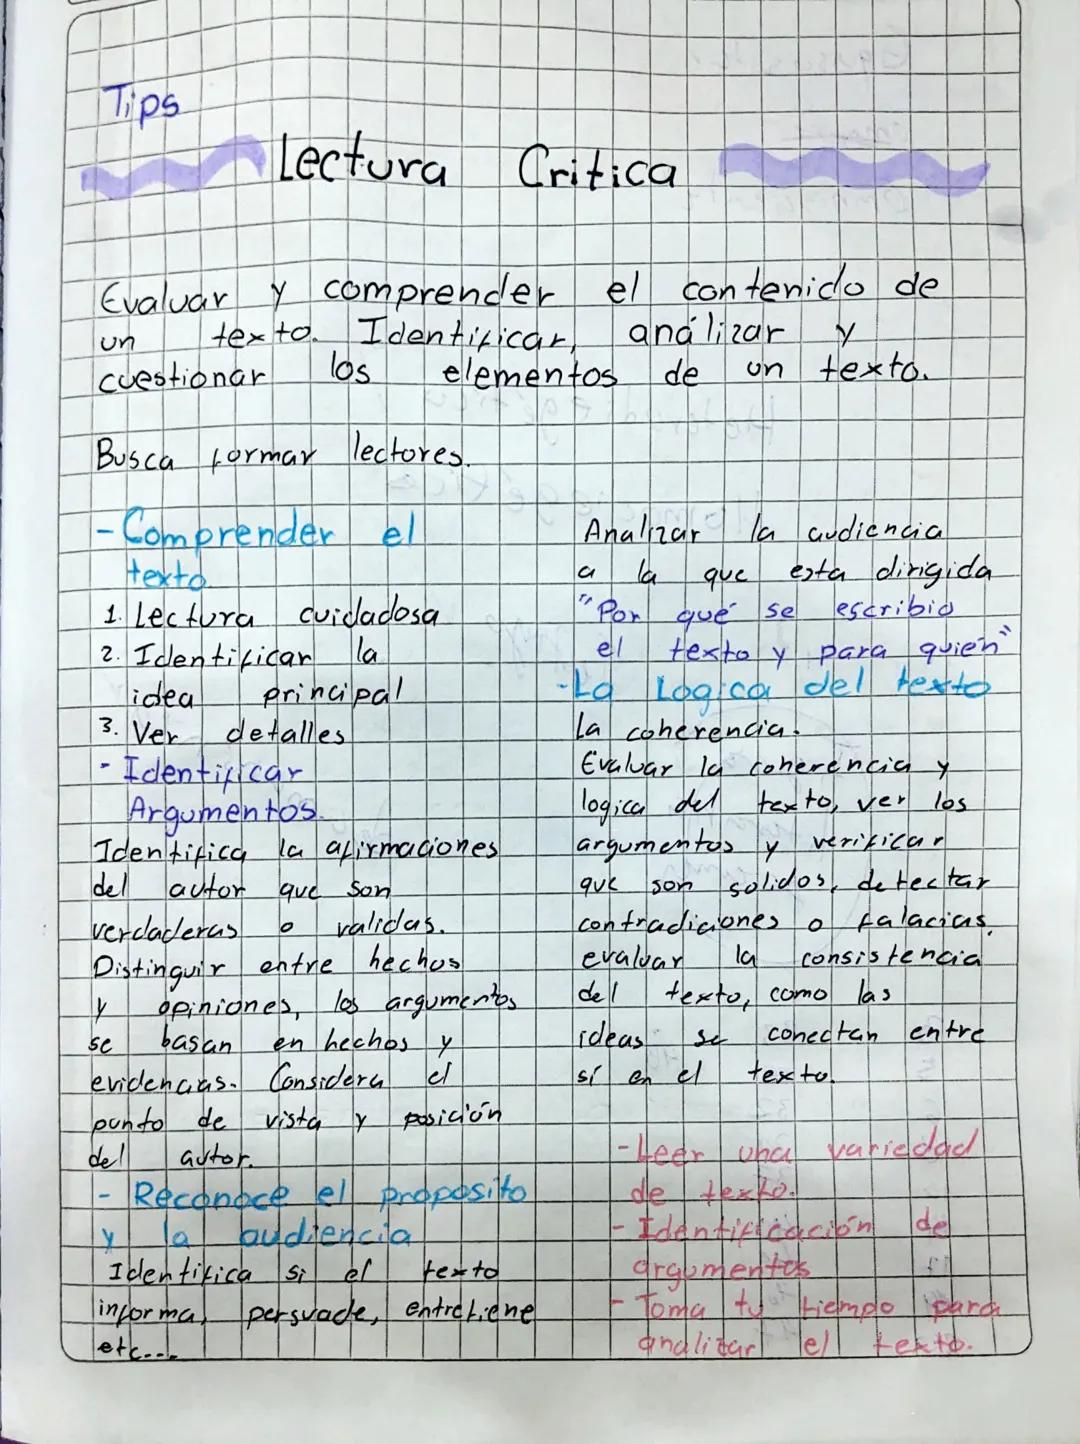 Tips
Lectura Critica
Evaluar y comprender el contenido de
un texto. Identificar, análizar y
cuestionar los elementos de un texto.
Busca formar lectores.
- Comprender el
texto
1. Lectura cuidadosa
2. Identificar la
idea principal
3. Ver detalles
- Identificar
Argumentos.
Identifica la afirmaciones
del autor que son
verdaderas o validas.
Distinguir entre hechos
y opiniones, los argumentos
se basan en hechos y
evidencias. Considera el
punto de vista y posición
del autor.
- Reconoce el proposito
y la audiencia
Identifica si el texto
informa, persuade, entretiene
etc....
Analizar la audiencia
a la que esta dirigida
"Por qué se escribio
el texto y para quien"
- La Logica del texto
La coherencia.
Evaluar la coherencia y
logica del texto, ver los
argumentos y verificar
que son solidos, detectar
contradiciones o falacias,
evaluar la consistencia
del texto, como las
ideas se conectan entre
sí en el texto.
- Leer una variedad
de texto.
- Identificación de
argumentos
- Toma tu tiempo para
analizar el texto.